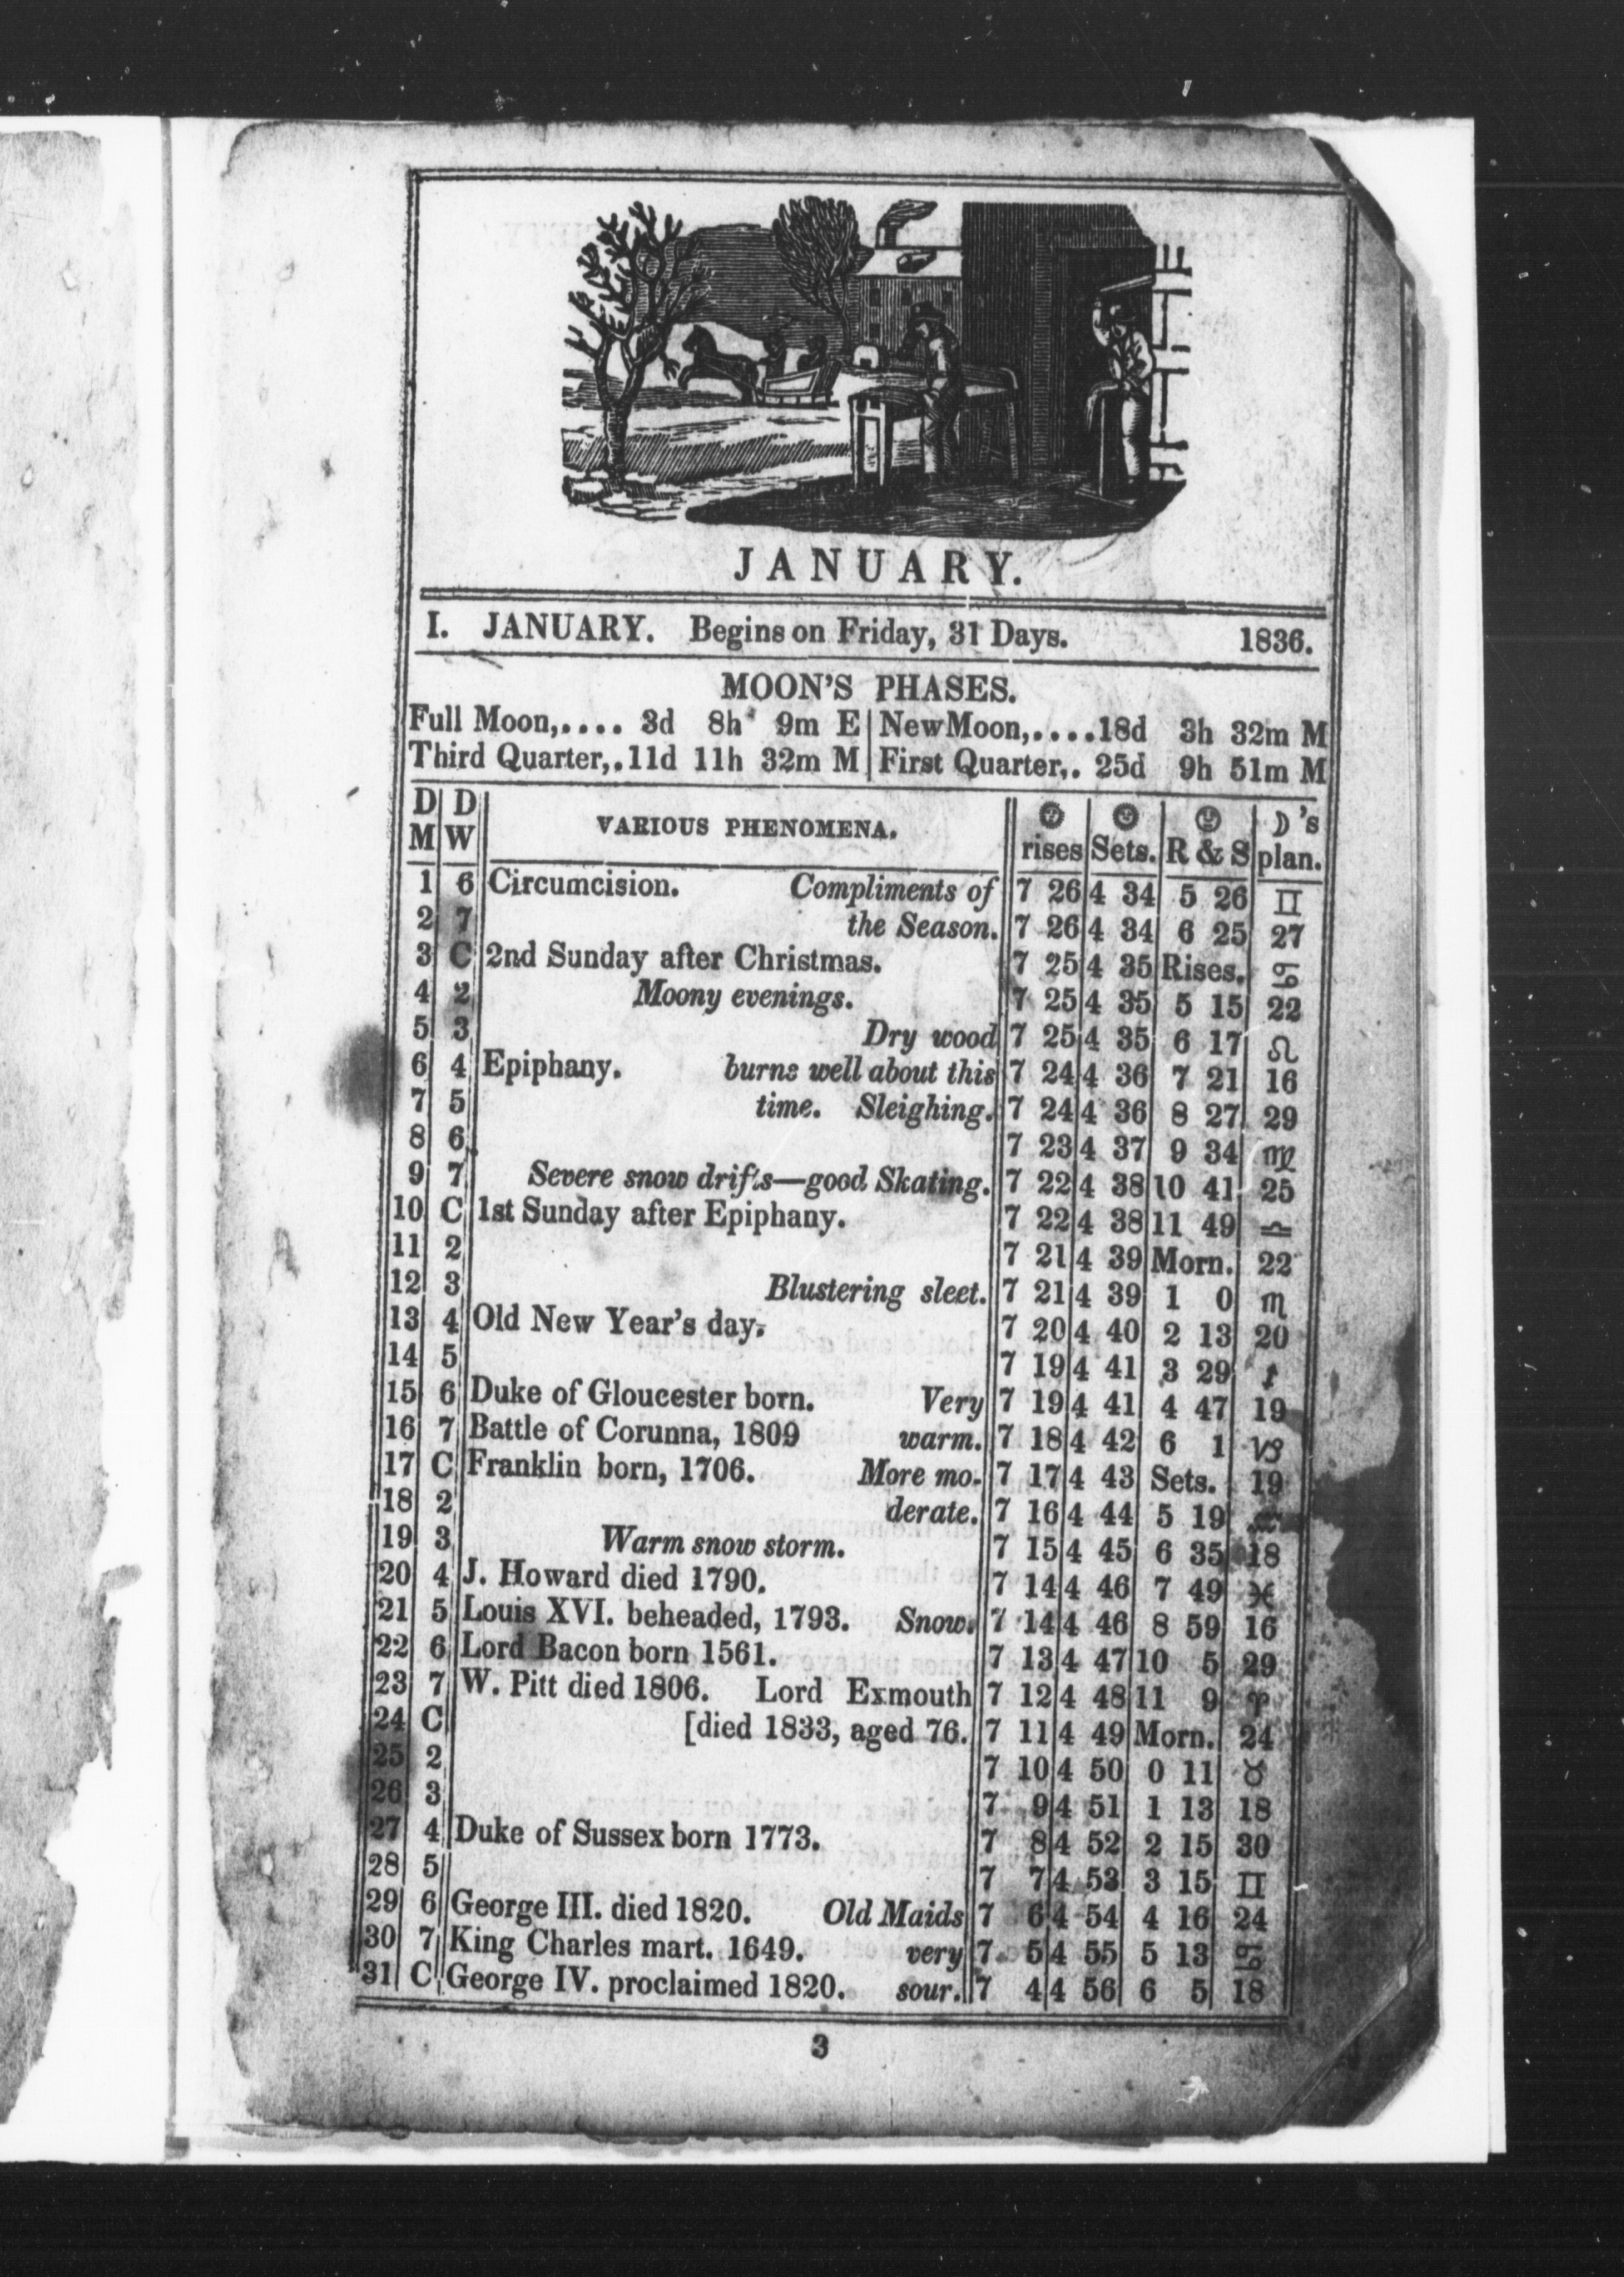 JANUARY.
I. JANUARY. Begins on Friday, 31 Days. 1836.
MOON'S PHASES.
Full Moon,.... 3d 8h 9m E | New Moon,....18d 3h 32m M
Third Quarter,.11d 11h 32m M | First Quarter,. 25d 9h 51m M
D M D W VARIOUS PHENOMENA. rises Sets. R & S ☽'s plan.
1 6 Circumcision. Compliments of 7 26 4 34 5 26 ♊
2 7 the Season. 7 26 4 34 6 25 27
3 C 2nd Sunday after Christmas. 7 25 4 35 Rises. ♋
4 2 Moony evenings. 7 25 4 35 5 15 22
5 3 Dry wood 7 25 4 35 6 17 ♌
6 4 Epiphany. burns well about this 7 24 4 36 7 21 16
7 5 time. Sleighing. 7 24 4 36 8 27 29
8 6 7 23 4 37 9 34 ♍
9 7 Severe snow drifts—good Skating. 7 22 4 38 10 41 25
10 C 1st Sunday after Epiphany. 7 22 4 38 11 49 ♎
11 2 7 21 4 39 Morn. 22
12 3 Blustering sleet. 7 21 4 39 1 0 ♏
13 4 Old New Year's day. 7 20 4 40 2 13 20
14 5 7 19 4 41 3 29 ♐
15 6 Duke of Gloucester born. Very 7 19 4 41 4 47 19
16 7 Battle of Corunna, 1809 warm. 7 18 4 42 6 1 ♑
17 C Franklin born, 1706. More mo- 7 17 4 43 Sets. 19
18 2 derate. 7 16 4 44 5 19 ♒
19 3 Warm snow storm. 7 15 4 45 6 35 18
20 4 J. Howard died 1790. 7 14 4 46 7 49 ♓
21 5 Louis XVI. beheaded, 1793. Snow. 7 14 4 46 8 59 16
22 6 Lord Bacon born 1561. 7 13 4 47 10 5 29
23 7 W. Pitt died 1806. Lord Exmouth 7 12 4 48 11 9 ♈
24 C [died 1833, aged 76. 7 11 4 49 Morn. 24
25 2 7 10 4 50 0 11 ♉
26 3 7 9 4 51 1 13 18
27 4 Duke of Sussex born 1773. 7 8 4 52 2 15 30
28 5 7 7 4 53 3 15 ♊
29 6 George III. died 1820. Old Maids 7 6 4 54 4 16 24
30 7 King Charles mart. 1649. very 7 5 4 55 5 13 ♋
31 C George IV. proclaimed 1820. sour. 7 4 4 56 6 5 18
3